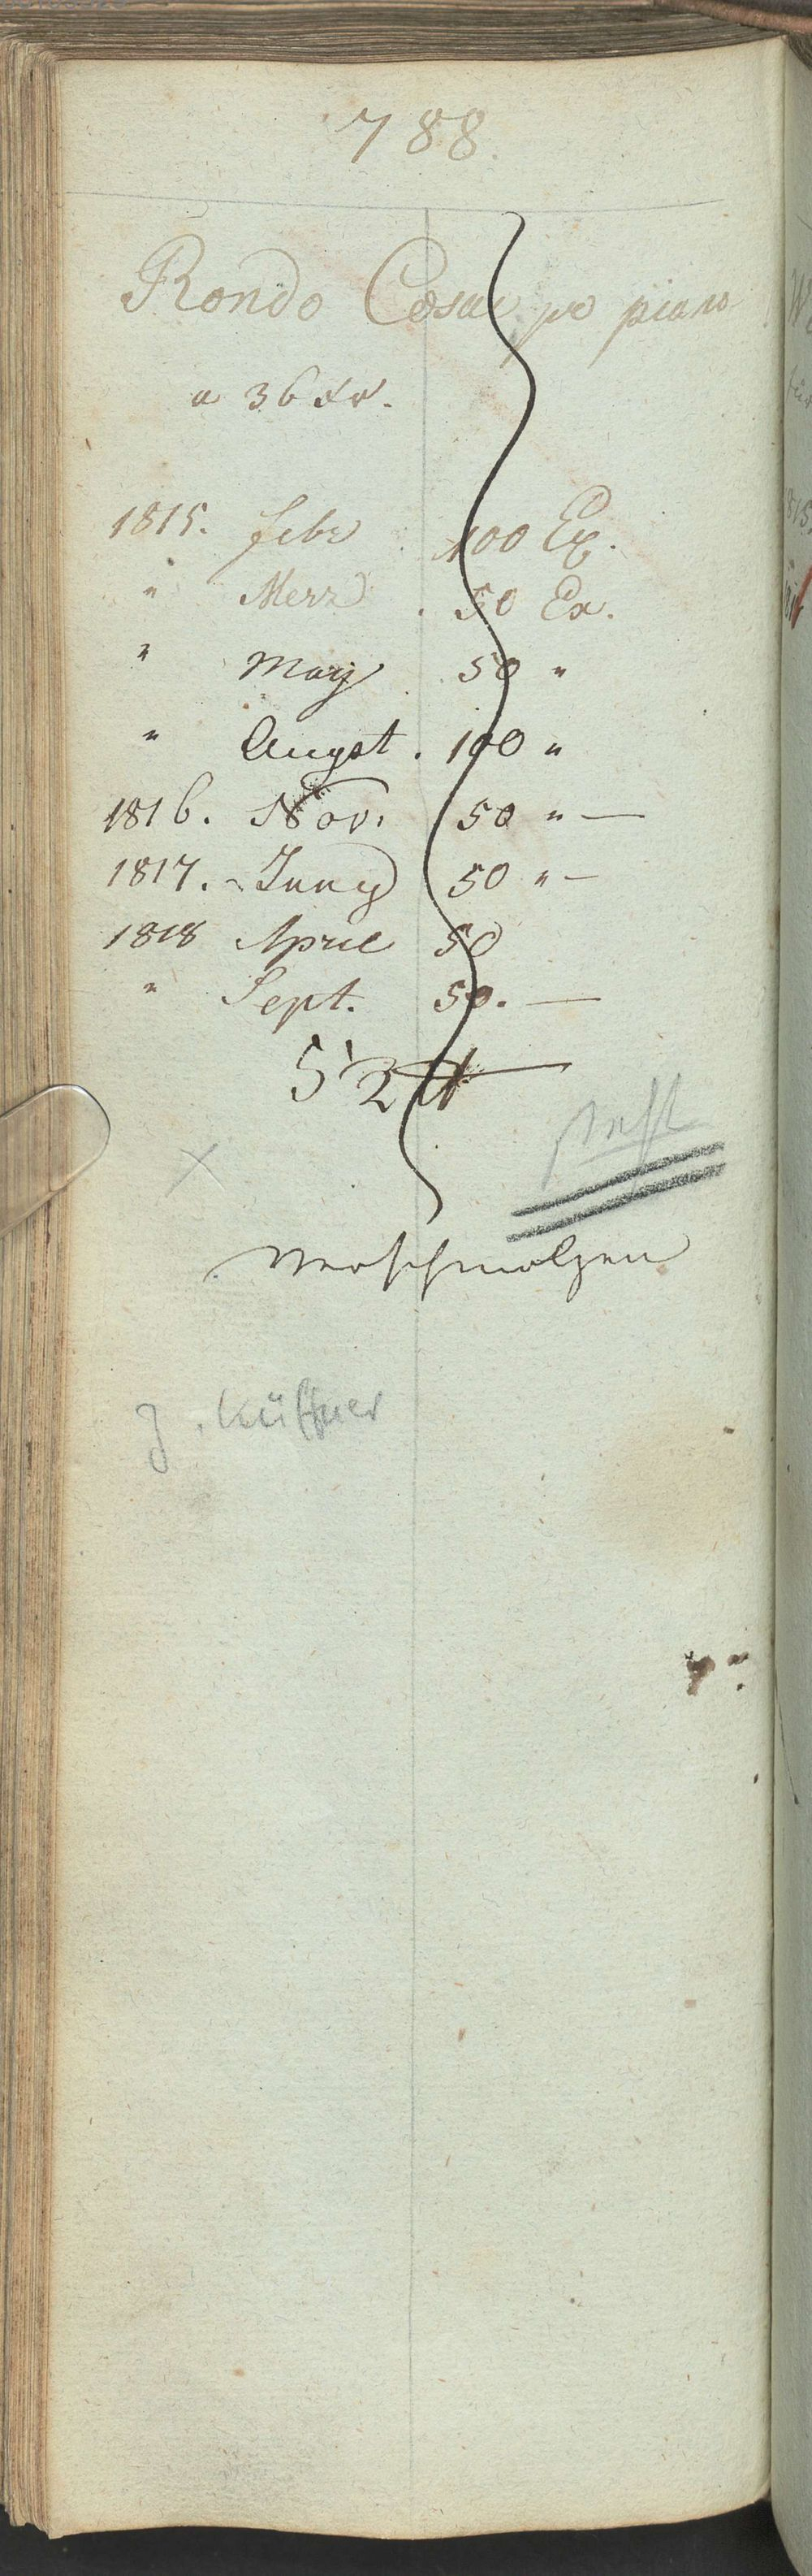 788.
Rondo Cosac po piano
a 36 xr.
1815. febr. 100 Ex.
" Merz. 50 Ex.
" May 50 "
" Augst. 100 "
1816. Nov. 50 " —
1817. Juny 50 " —
1818 April 50
" Sept. 50. —
52 ₶
X
Verschmolzen
J. Küffner